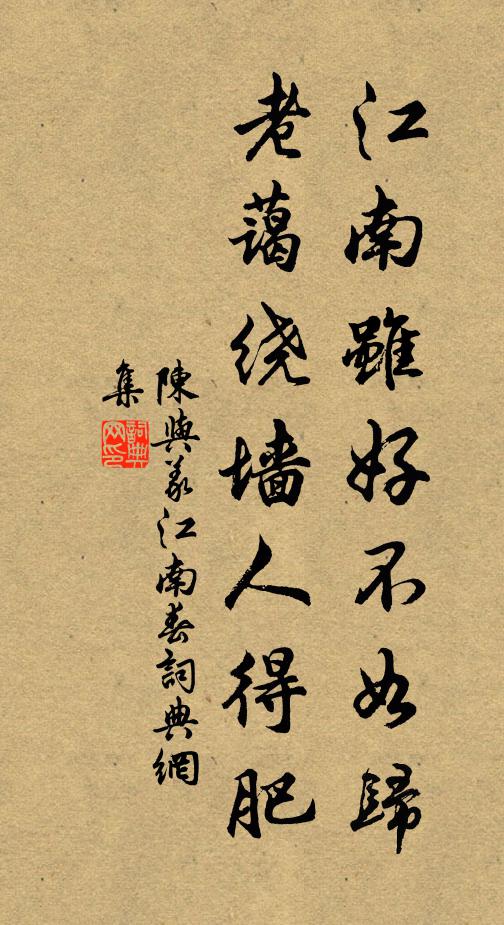 江南雖好不如歸
老藹绕墙人得肥
陳與義江南春詞典網
集
詞典
网印